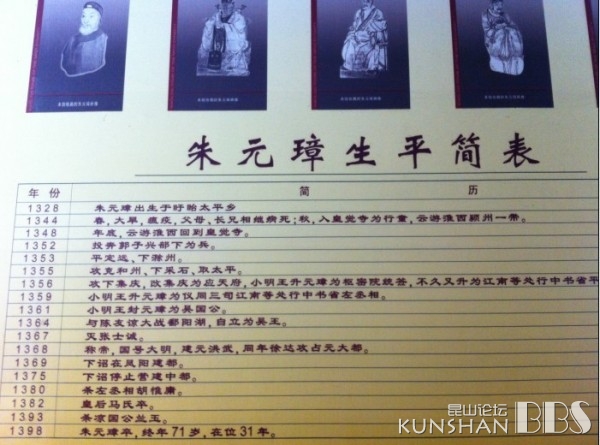 朱元璋生平简表
年份 简历
1328 朱元璋出生于盱眙太平乡
1344 春，大旱，瘟疫，父母，长兄相继病死；秋，入皇觉寺为行童，云游淮西颍州一带。
1348 年底，云游淮西回到皇觉寺。
1352 投奔郭子兴部下为兵。
1353 平定远、下滁州。
1355 攻克和州、下采石、取太平。
1356 攻下集庆，改集庆为应天府，小明王升元璋为枢密院统答，不久又升为江南等处行中书省平
1359 小明王升元璋为仪同三司江南等处行中书省左丞相。
1361 小明王封元璋为吴国公。
1364 与陈友谅大战鄱阳湖，自立为吴王。
1367 灭张士诚。
1368 称帝，国号大明，建元洪武，同年徐达攻占元大都。
1369 下诏在凤阳建都。
1375 下诏停止营建中都。
1380 杀左丞相胡惟庸。
1382 皇后马氏卒。
1393 杀凉国公兰玉。
1398 朱元璋卒，终年71岁，在位31年。
昆山论坛
KUNSHAN BBS